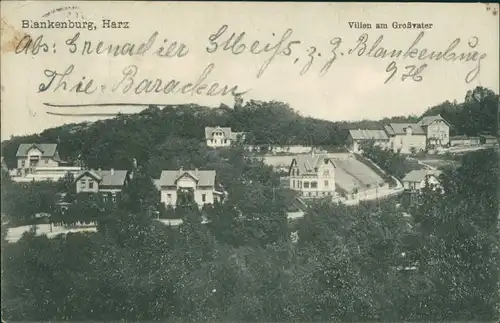 Blankenburg, Harz
Villen am Großvater
Abs: Grenadier Steifs, z. Z. Blankenburg
Thie-Baracken